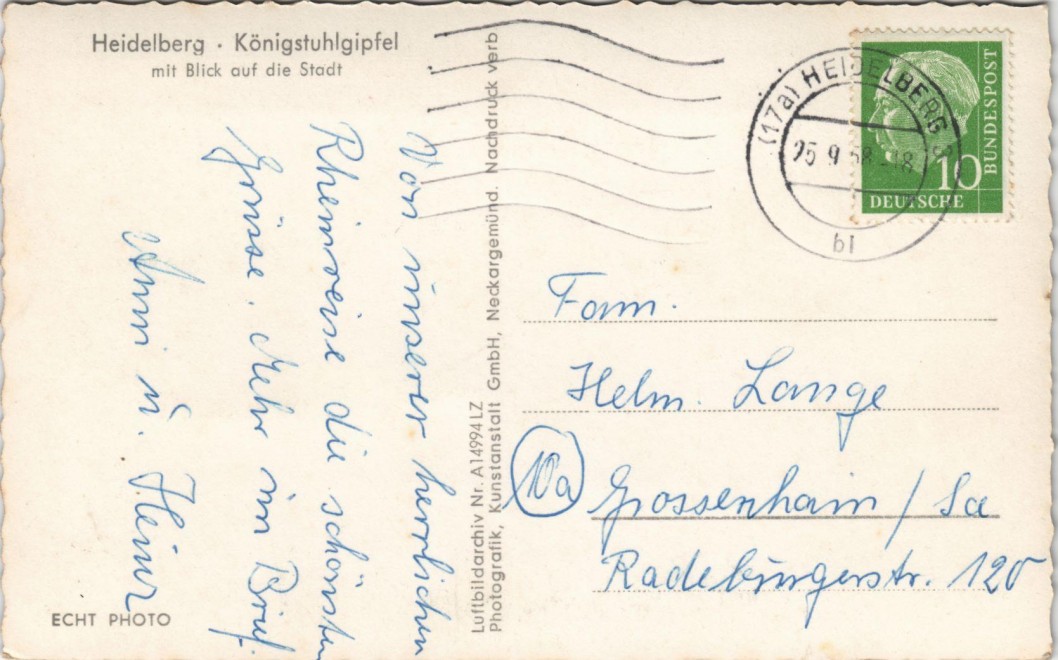 Heidelberg · Königstuhlgipfel
mit Blick auf die Stadt
Von unserer herrlichen
Rheinreise die schönsten
Grüsse. Mehr im Brief.
Anni u. Heinz
ECHT PHOTO
Luftbildarchiv Nr. A 14994 LZ
Photografik, Kunstanstalt GmbH, Neckargemünd. Nachdruck verb
(17a) HEIDELBERG
25 9 58
bl
10
DEUTSCHE
BUNDESPOST
Fam.
Helm. Lange
10a Grossenhain / Sa
Radeburgerstr. 120